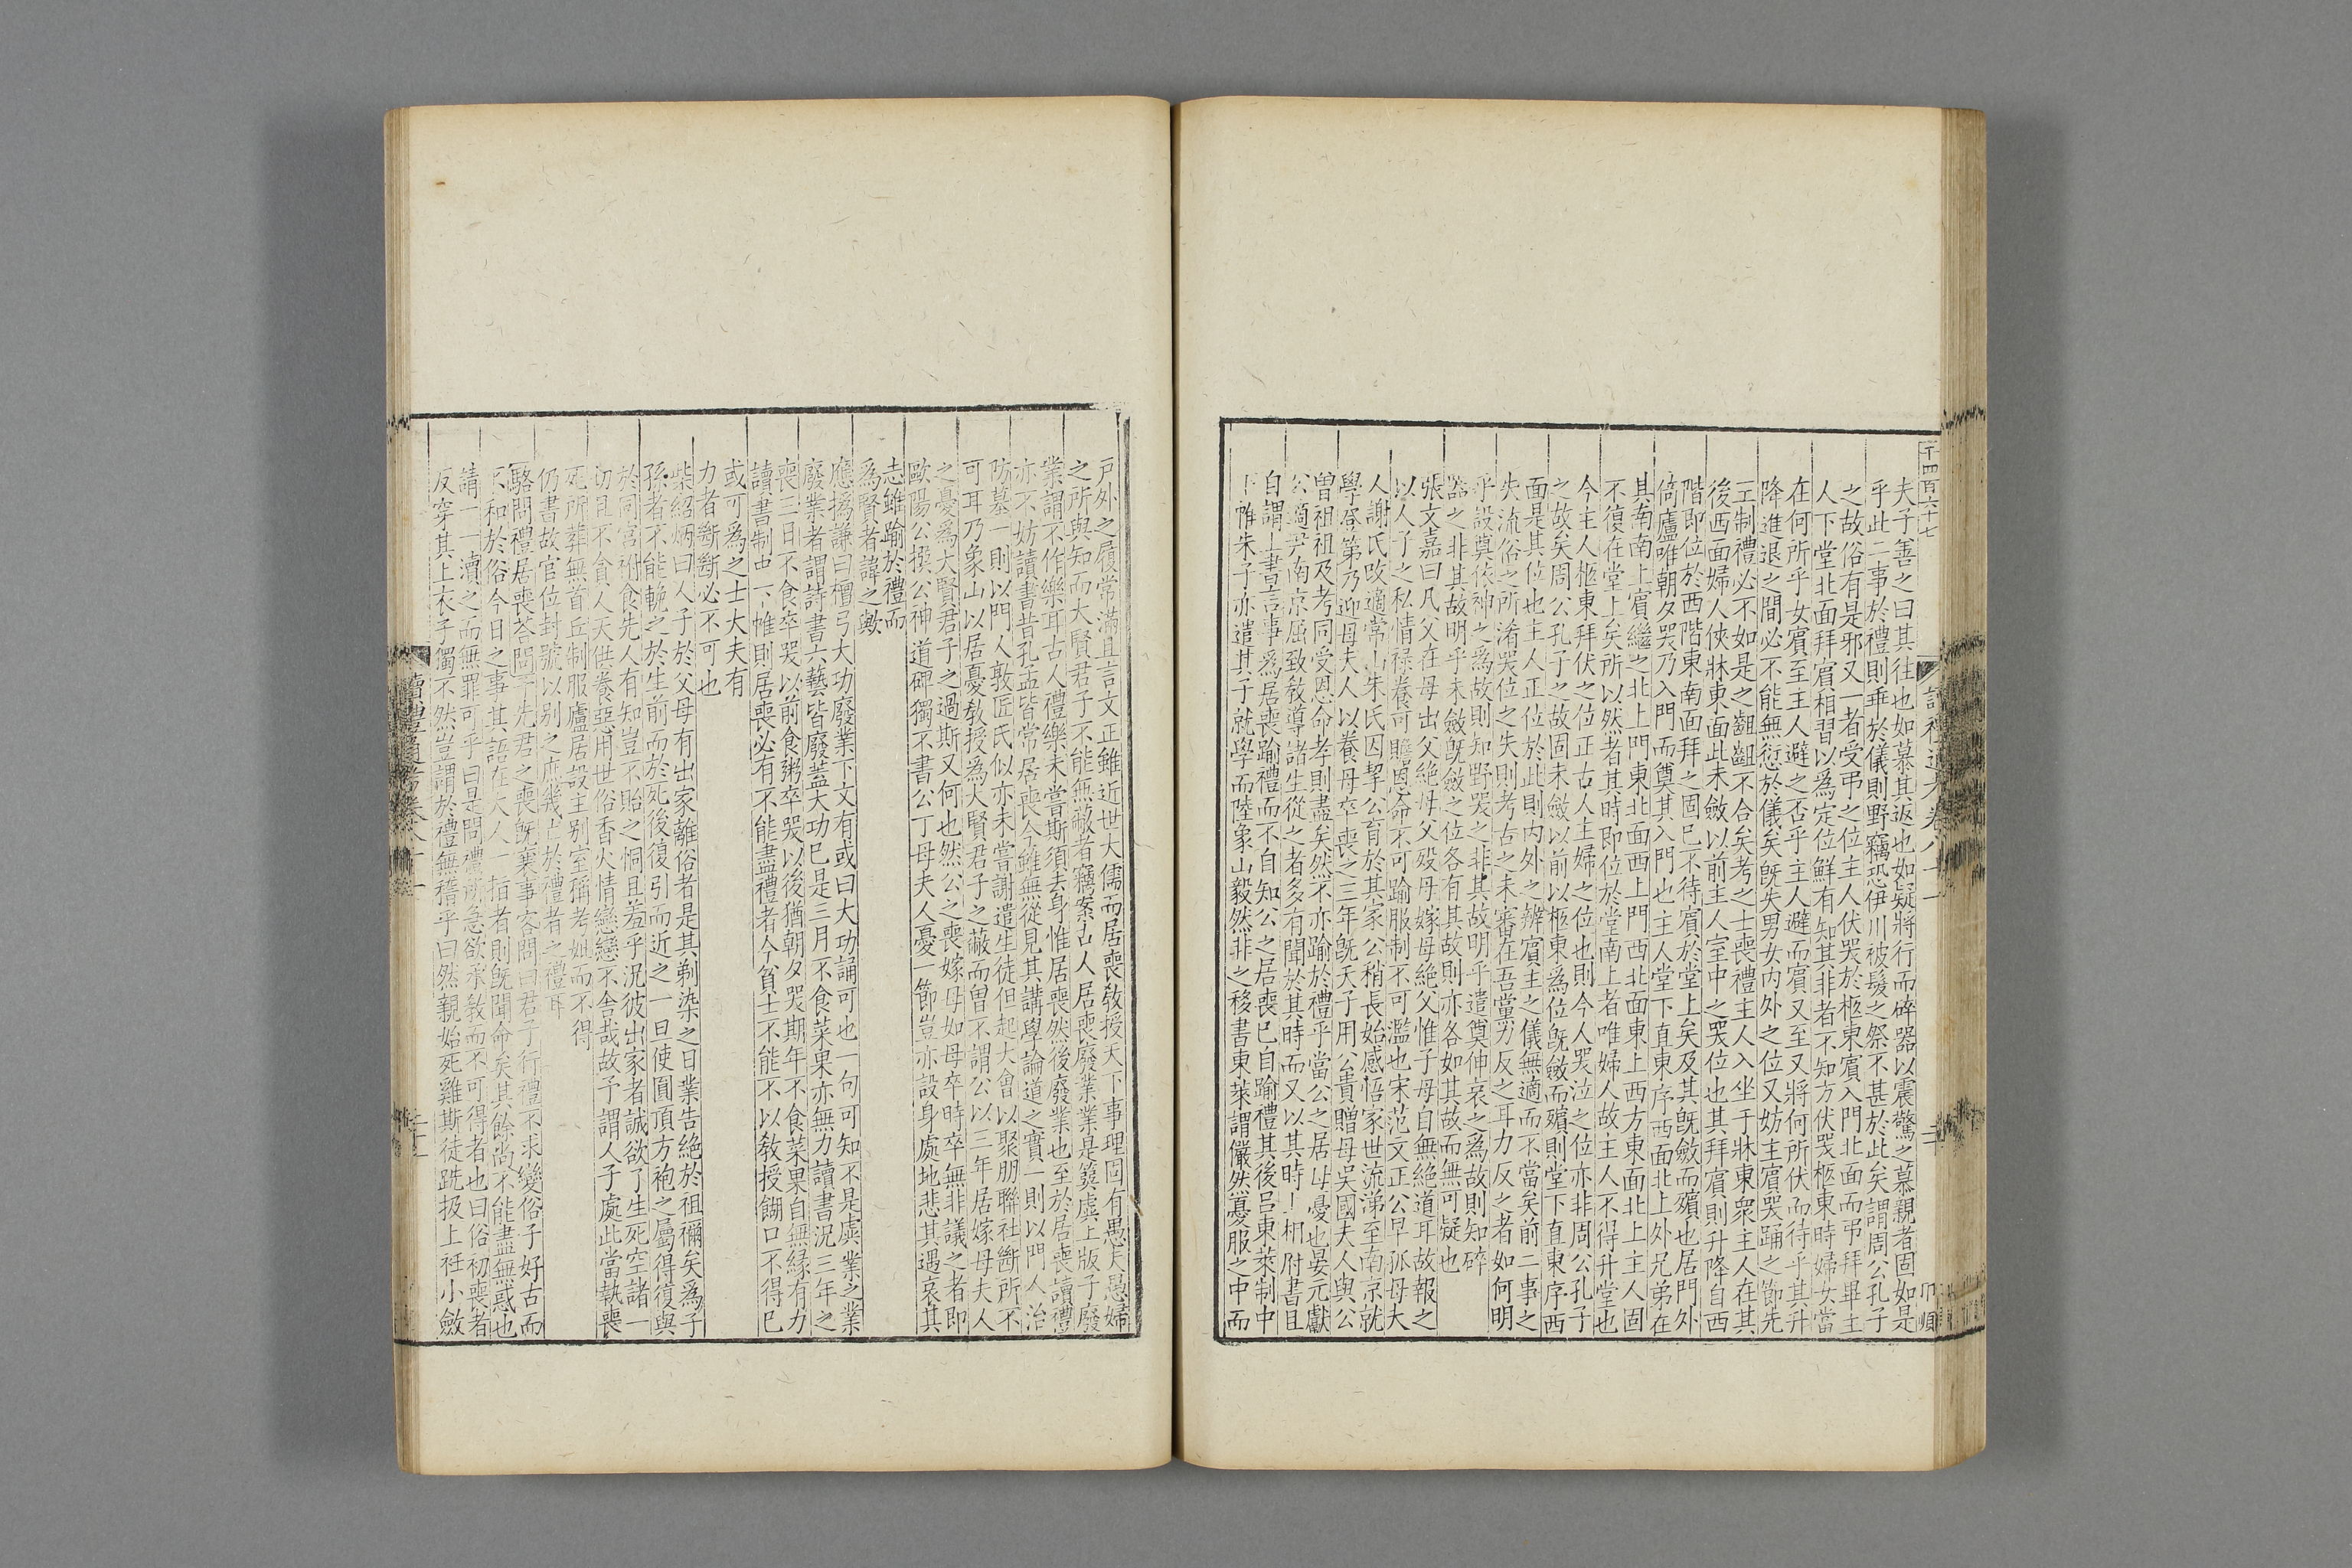 夫子善之曰其往也如慕其返也如疑將行而碎器以震驚之慕親者固如是
乎此二事於禮則乖於儀則野竊恐伊川被髮之祭不甚於此矣謂周公孔子
之故俗有是邪又一者受弔之位主人伏哭於柩東賓入門北面而弔拜畢主
人下堂北面拜賓相習以爲定位鮮有知其非者不知方伏哭柩東時婦女當
在何所乎女賓至主人避之否乎主人避而賓又至又將何所伏而待乎其升
降進退之間必不能無愆於儀矣旣失男女內外之位又妨主賓哭踊之節先
王制禮必不如是之齟齬不合矣考之士喪禮主人入坐于牀東衆主人在其
後西面婦人俠牀東面此未斂以前主人室中之哭位也其拜賓則升降自西
階即位於西階東南面拜之固已不待賓於堂上矣及其旣斂而殯也居門外
倚廬唯朝夕哭乃入門而奠其入門也主人堂下直東序西面北上外兄弟在
其南南上賓繼之北上門東北面西上門西北面東上西方東面北上主人固
不復在堂上矣所以然者其時即位於堂南上者唯婦人故主人不得升堂也
今主人柩東拜伏之位正古人主婦之位也則今人哭泣之位亦非周公孔子
之故矣周公孔子之故固未斂以前以柩東爲位旣斂而殯則堂下直東序西
面是其位也主人正位於此則內外之辨賓主之儀無適而不當矣前二事之
失流俗之所淆哭位之失則考古之未審在吾黨力反之耳力反之者如何明
乎設奠依神之爲故則知野哭之非其故明乎遣奠伸哀之爲故則知碎
器之非其故明乎未斂旣斂之位各有其故則亦各如其故而無可疑也
張文嘉曰凡父在母出父絶母父歿母嫁母絶父惟子母自無絶道耳故報之
以人子之私情祿養可贍恩命不可踰服制不可濫也宋范文正公早孤母大
人謝氏改適常山朱氏因挈公育於其家公稍長始感悟家世流涕至南京就
學登第乃迎母夫人以養母卒喪之三年旣天子用公貴贈母吳國夫人與公
曾祖祖及考同受恩命孝則盡矣然不亦踰於禮乎當公之居母憂也晏元獻
公適尹南京屈致敎導諸生從之者多有聞於其時而又以其時上相府書且
自謂上書言事爲居喪踰禮而不自知公之居喪已自踰禮其後呂東萊制中
下帷朱子亦遣其子就學而陸象山毅然非之移書東萊謂儼然憂服之中而
戸外之履常滿且言文正雖近世大儒而居喪敎授天下事理固有愚夫愚婦
之所與知而大賢君子不能無蔽者竊案古人居喪廢業業是簨虡上版子廢
業謂不作樂耳古人禮樂未嘗斯須去身惟居喪然後廢業也至於居喪讀禮
亦不妨讀書昔孔孟皆常居喪今雖無從見其講學論道之實一則以門人治
防墓一則以門人敦匠氏似亦未嘗謝遣生徒但起大會以聚朋聯社斷所不
可耳乃象山以居憂敎授爲大賢君子之蔽而曾不謂公以三年居嫁母夫人
之憂爲大賢君子之過斯又何也然公之喪嫁母如母卒時卒無非議之者即
歐陽公撰公神道碑獨不書公丁母夫人憂一節豈亦設身處地悲其遇哀其
志雖踰於禮而
爲賢者諱之歟
應撝謙曰檀弓大功廢業下文有或曰大功誦可也一句可知不是虡業之業
廢業者謂詩書六藝皆廢蓋大功已是三月不食菜果亦無力讀書況三年之
喪三日不食卒哭以前食粥卒哭以後猶朝夕哭期年不食菜果自無緣有力
讀書制中下帷則居喪必有不能盡禮者今貧士不能不以敎授餬口不得已
或可爲之士大夫有
力者斷斷必不可也
柴紹炳曰人子於父母有出家離俗者是其剃染之日業告絶於祖禰矣爲子
孫者不能輓之於生前而於死後復引而近之一旦使圓頂方袍之屬得復與
於同宮祔食先人有知豈不貽之恫且羞乎況彼出家者誠欲了生死空諸一
切且不貪人天供養惡用世俗香火情戀戀不舍哉故予謂人子處此當執喪
死所葬無首丘制服廬居設主别室稱考妣而不得
仍書故官位封號以别之庶幾亡於禮者之禮耳
駱問禮居喪荅問予先君之喪旣襄事客問曰君子行禮不求變俗子好古而
不和於俗今日之事其語在大人一指者則旣聞命矣其餘尚不能盡無惑也
請一一瀆之而無罪可乎曰是問禮所急欲承敎而不可得者也曰俗初喪者
反穿其上衣子獨不然豈謂於禮無稽乎曰然親始死雞斯徒跣扱上衽小斂
讀禮通考卷八十一